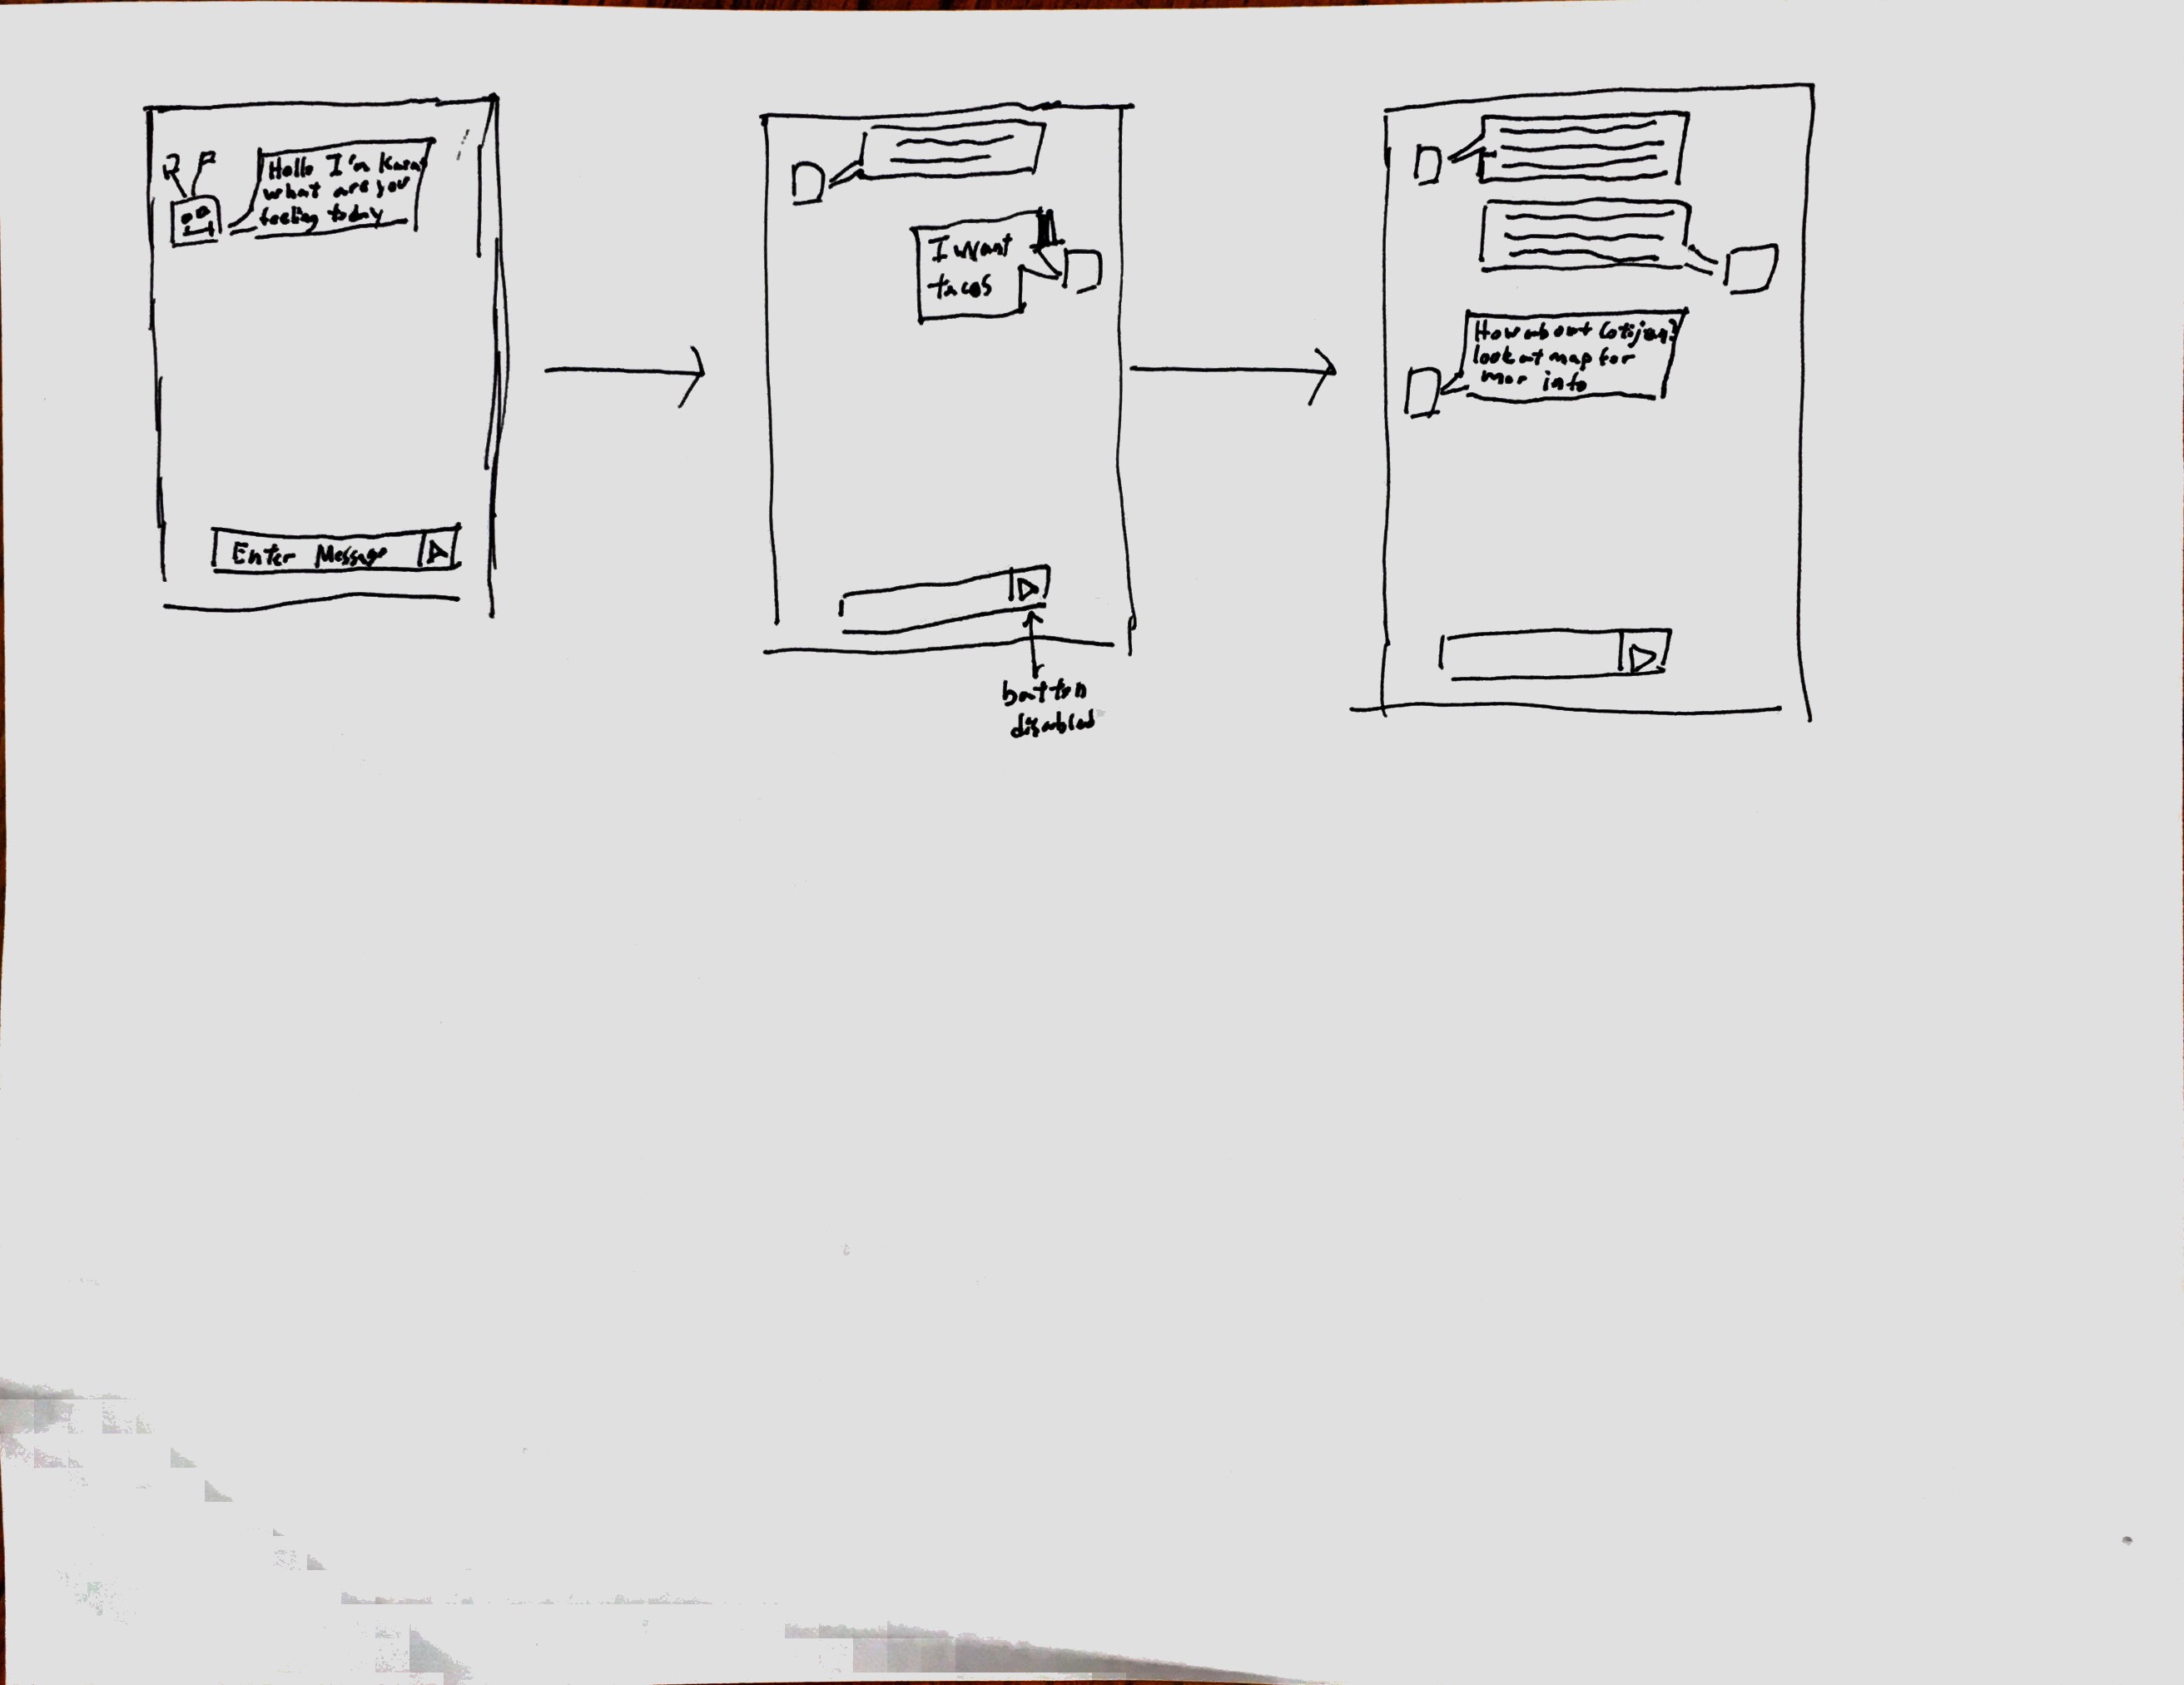 Hello I'm
what are you
feeling today
Enter Message
I want
tacos
button
disabled
How about Cotijas?
look at map for
mor info